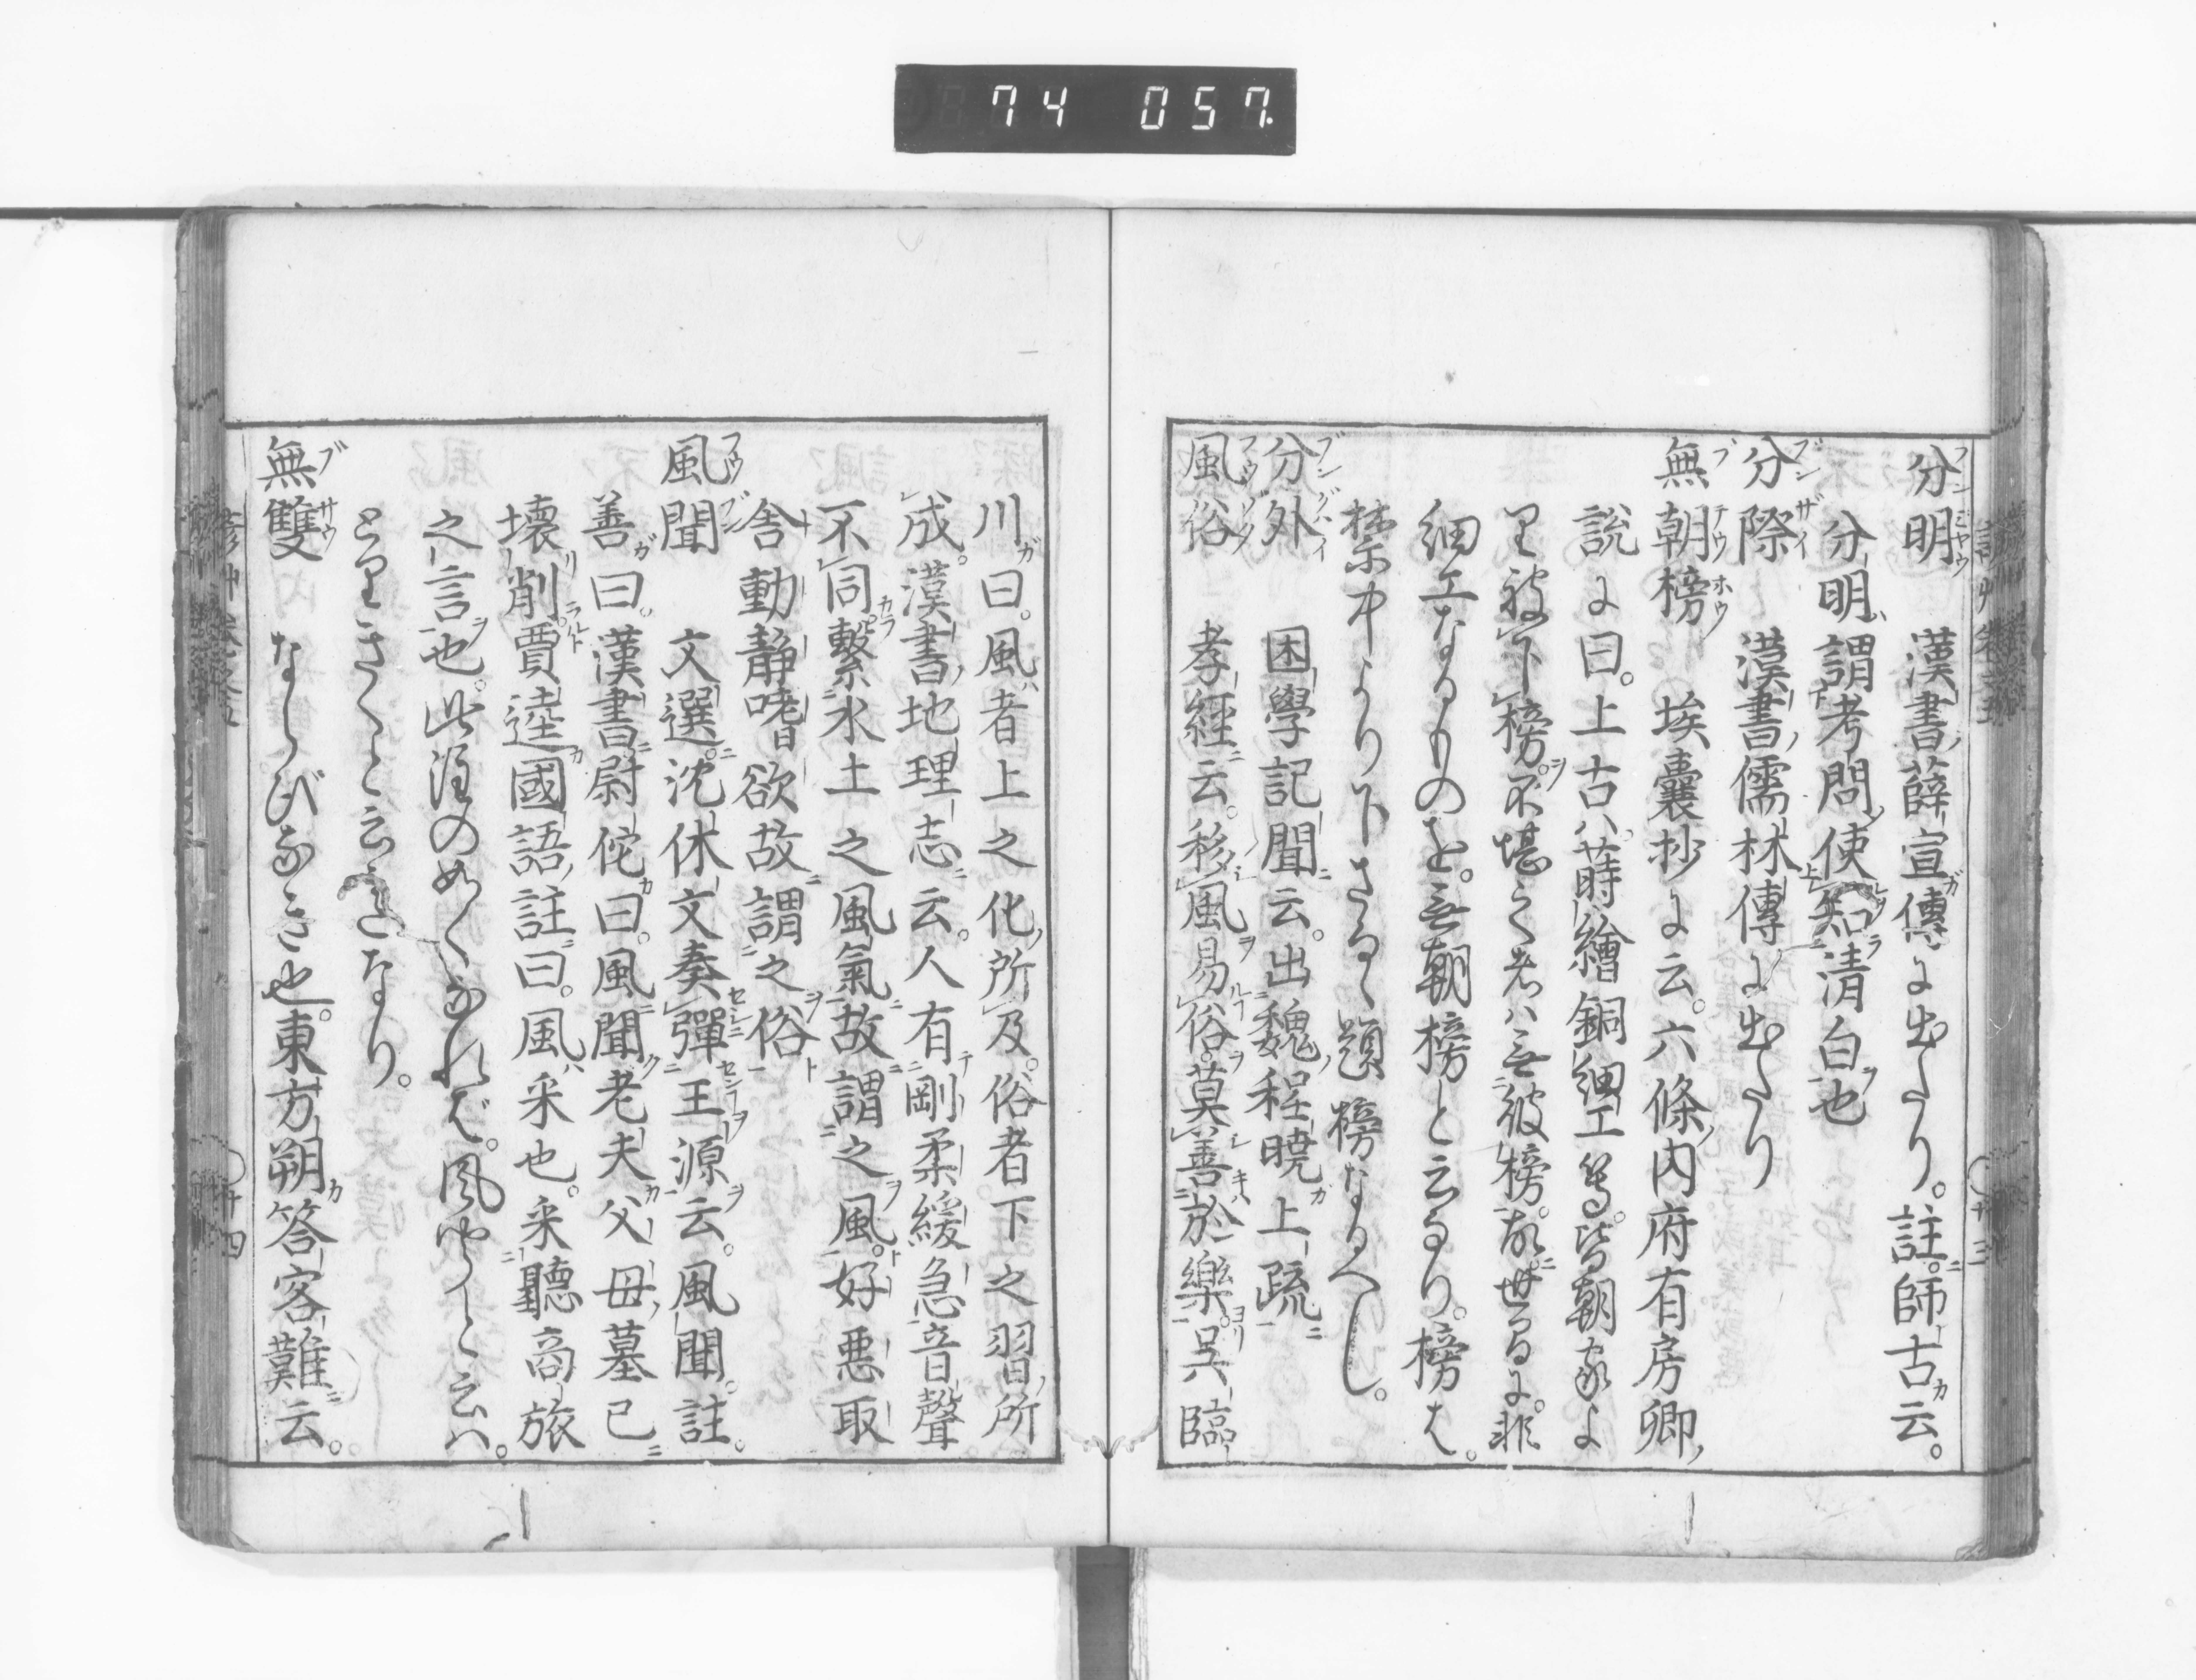 74 057.
分明 漢書薛宣傳に出たり。註師古云。
分明謂考問使知清白也
分際 漢書儒林傳に出たり
無朝榜 埃嚢抄に云。六條内府有房卿
説に曰。上古ハ蒔繪銅細工等。皆朝家よ
り被下榜。不堪之者ハ无彼榜。故世るに。非
細工なるものを。无朝榜と云なり。榜は。
禁中より下さるゝ題榜なるへし。
分外 困學記聞云。出魏程曉上疏
風俗 孝經云。移風易俗。莫善於樂。呉臨
川曰。風者上之化所及。俗者下之習所
成。漢書地理志云。人有剛柔緩急音聲
不同繋水土之風氣故謂之風。好悪取
舎動静嗜欲故謂之俗
風聞 文選沈休文奏彈王源云。風聞。註
善曰。漢書尉佗曰。風聞老夫父母墓已
壊削。賈逵國語註曰。風采也。采聽商旅
之言也。此注のめくなれば。風ゆうと云ハ。
とりさくと云ことなり。
無雙 ならびなき也。東方朔答客難云。